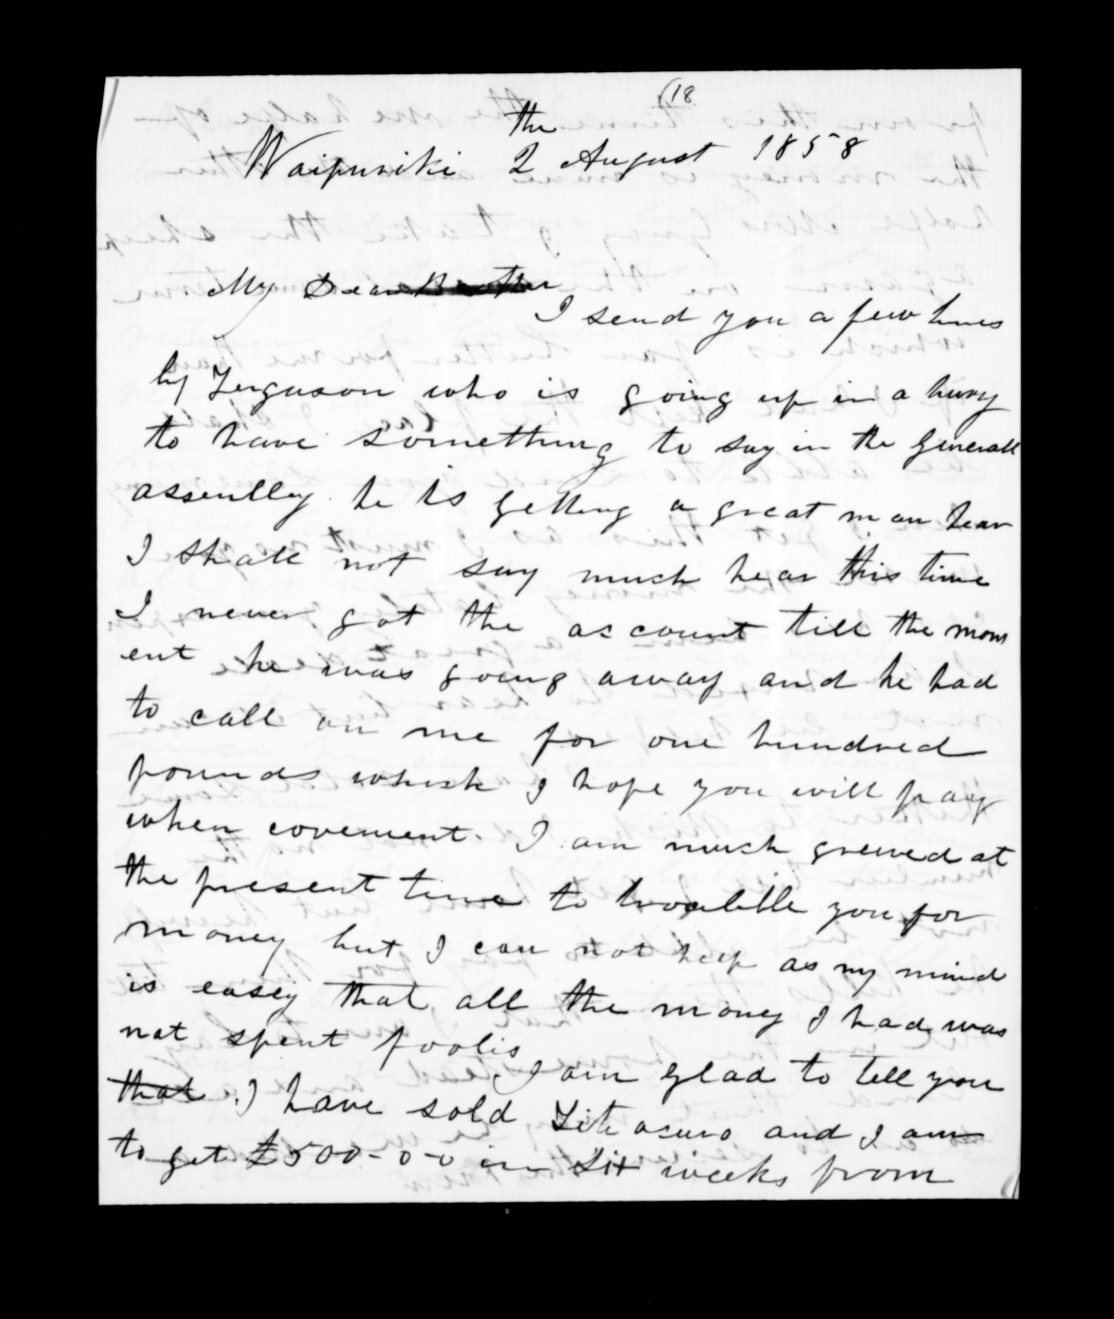 (18
the
Waipuriki 2 August 1858
My Dear Brother
I send you a few lines
by Ferguson who is going up in a hury
to have something to say in the Generall
assemlley. he is getting a great man hear
I shall not say much hear this time
I never got the account till the mom
ent he was going away and he had
to call on me for one hundred
pounds which I hope you will pay
when covenient. I am much greived at
the present time to trouble you for
money but I can not help as my mind
is easey that all the money I had was
not spent foolis
I am glad to tell you
that I have sold and I am
to get £500-0-0 in Six weeks from